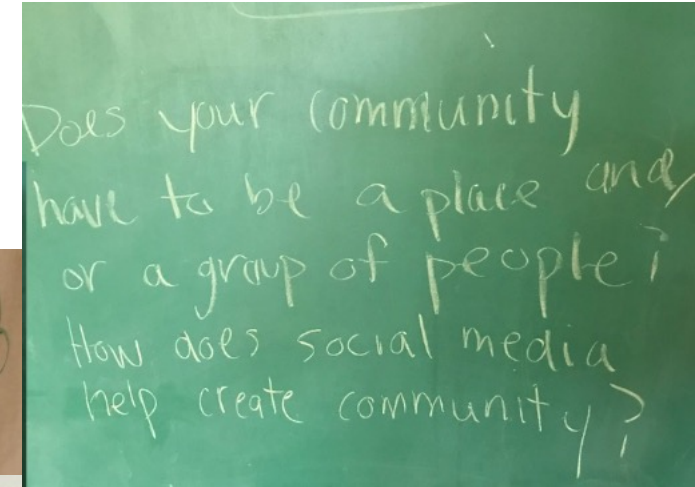 Does your community
have to be a place and/
or a group of people?
How does social media
help create community?